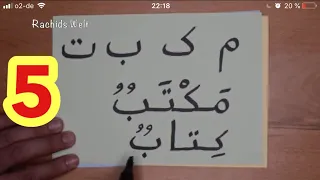 o2-de 22:18 20 %
Rachids Welt
م ک ب ت
5
مَكْتَبٌ
كِتابٌ